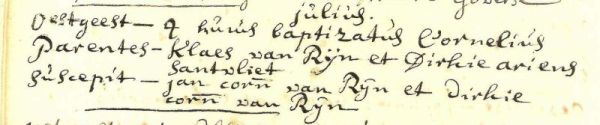 julius.
oestgeest - 4 huius baptizatus Cornelius
Parentes - Klaes van Rÿn et Dirkie ariens
Santvliet
suscepit - jan corñ van Rÿn et dirkie
corñ van Rÿn